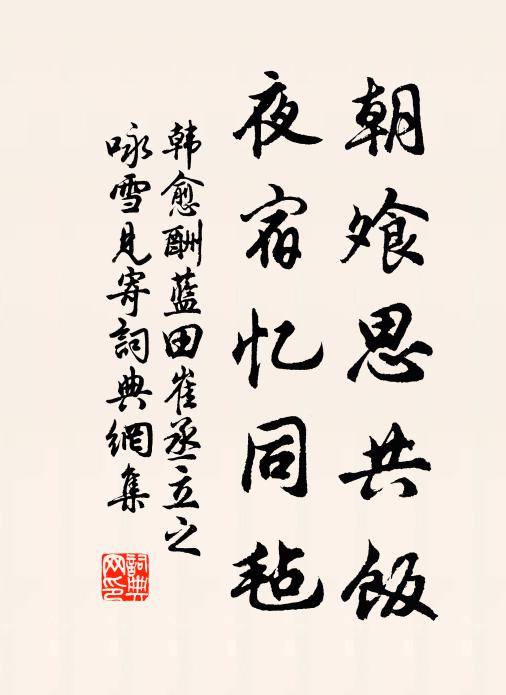 朝飧思共饭
夜宿忆同毡
韩愈酬蓝田崔丞立之
咏雪见寄词典網集
詞典網印